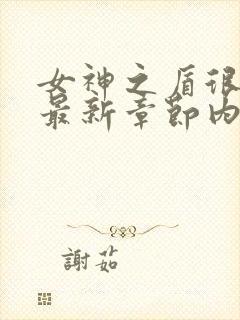 女神之盾很
最新章節內
謝茹